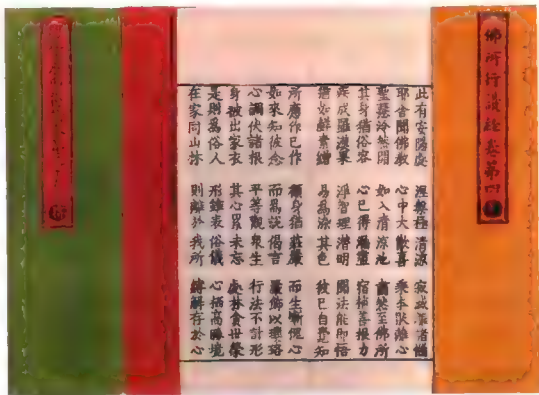 佛所行讚經卷第四
此有安隱處 涅槃極清涼 寂滅離諸惱
耶舍聞佛教 心中大歡喜 乘本厭離心
聖慧泠然開 如入清涼池 肅然至佛所
其身猶俗容 心已得漏盡 宿植善根力
疾成羅漢果 淨智理潛明 聞法能即悟
猶如鮮素繒 易為染其色 彼已自覺知
所應作已作 顧身猶莊嚴 而生慚愧心
如來知彼念 而為說偈言 嚴飾以瓔珞
心調伏諸根 平等觀眾生 行法不計形
身被出家衣 其心累未忘 處林貪世榮
是則為俗人 形雖表俗儀 心栖高勝境
在家同山林 則離於我所 縛解存於心